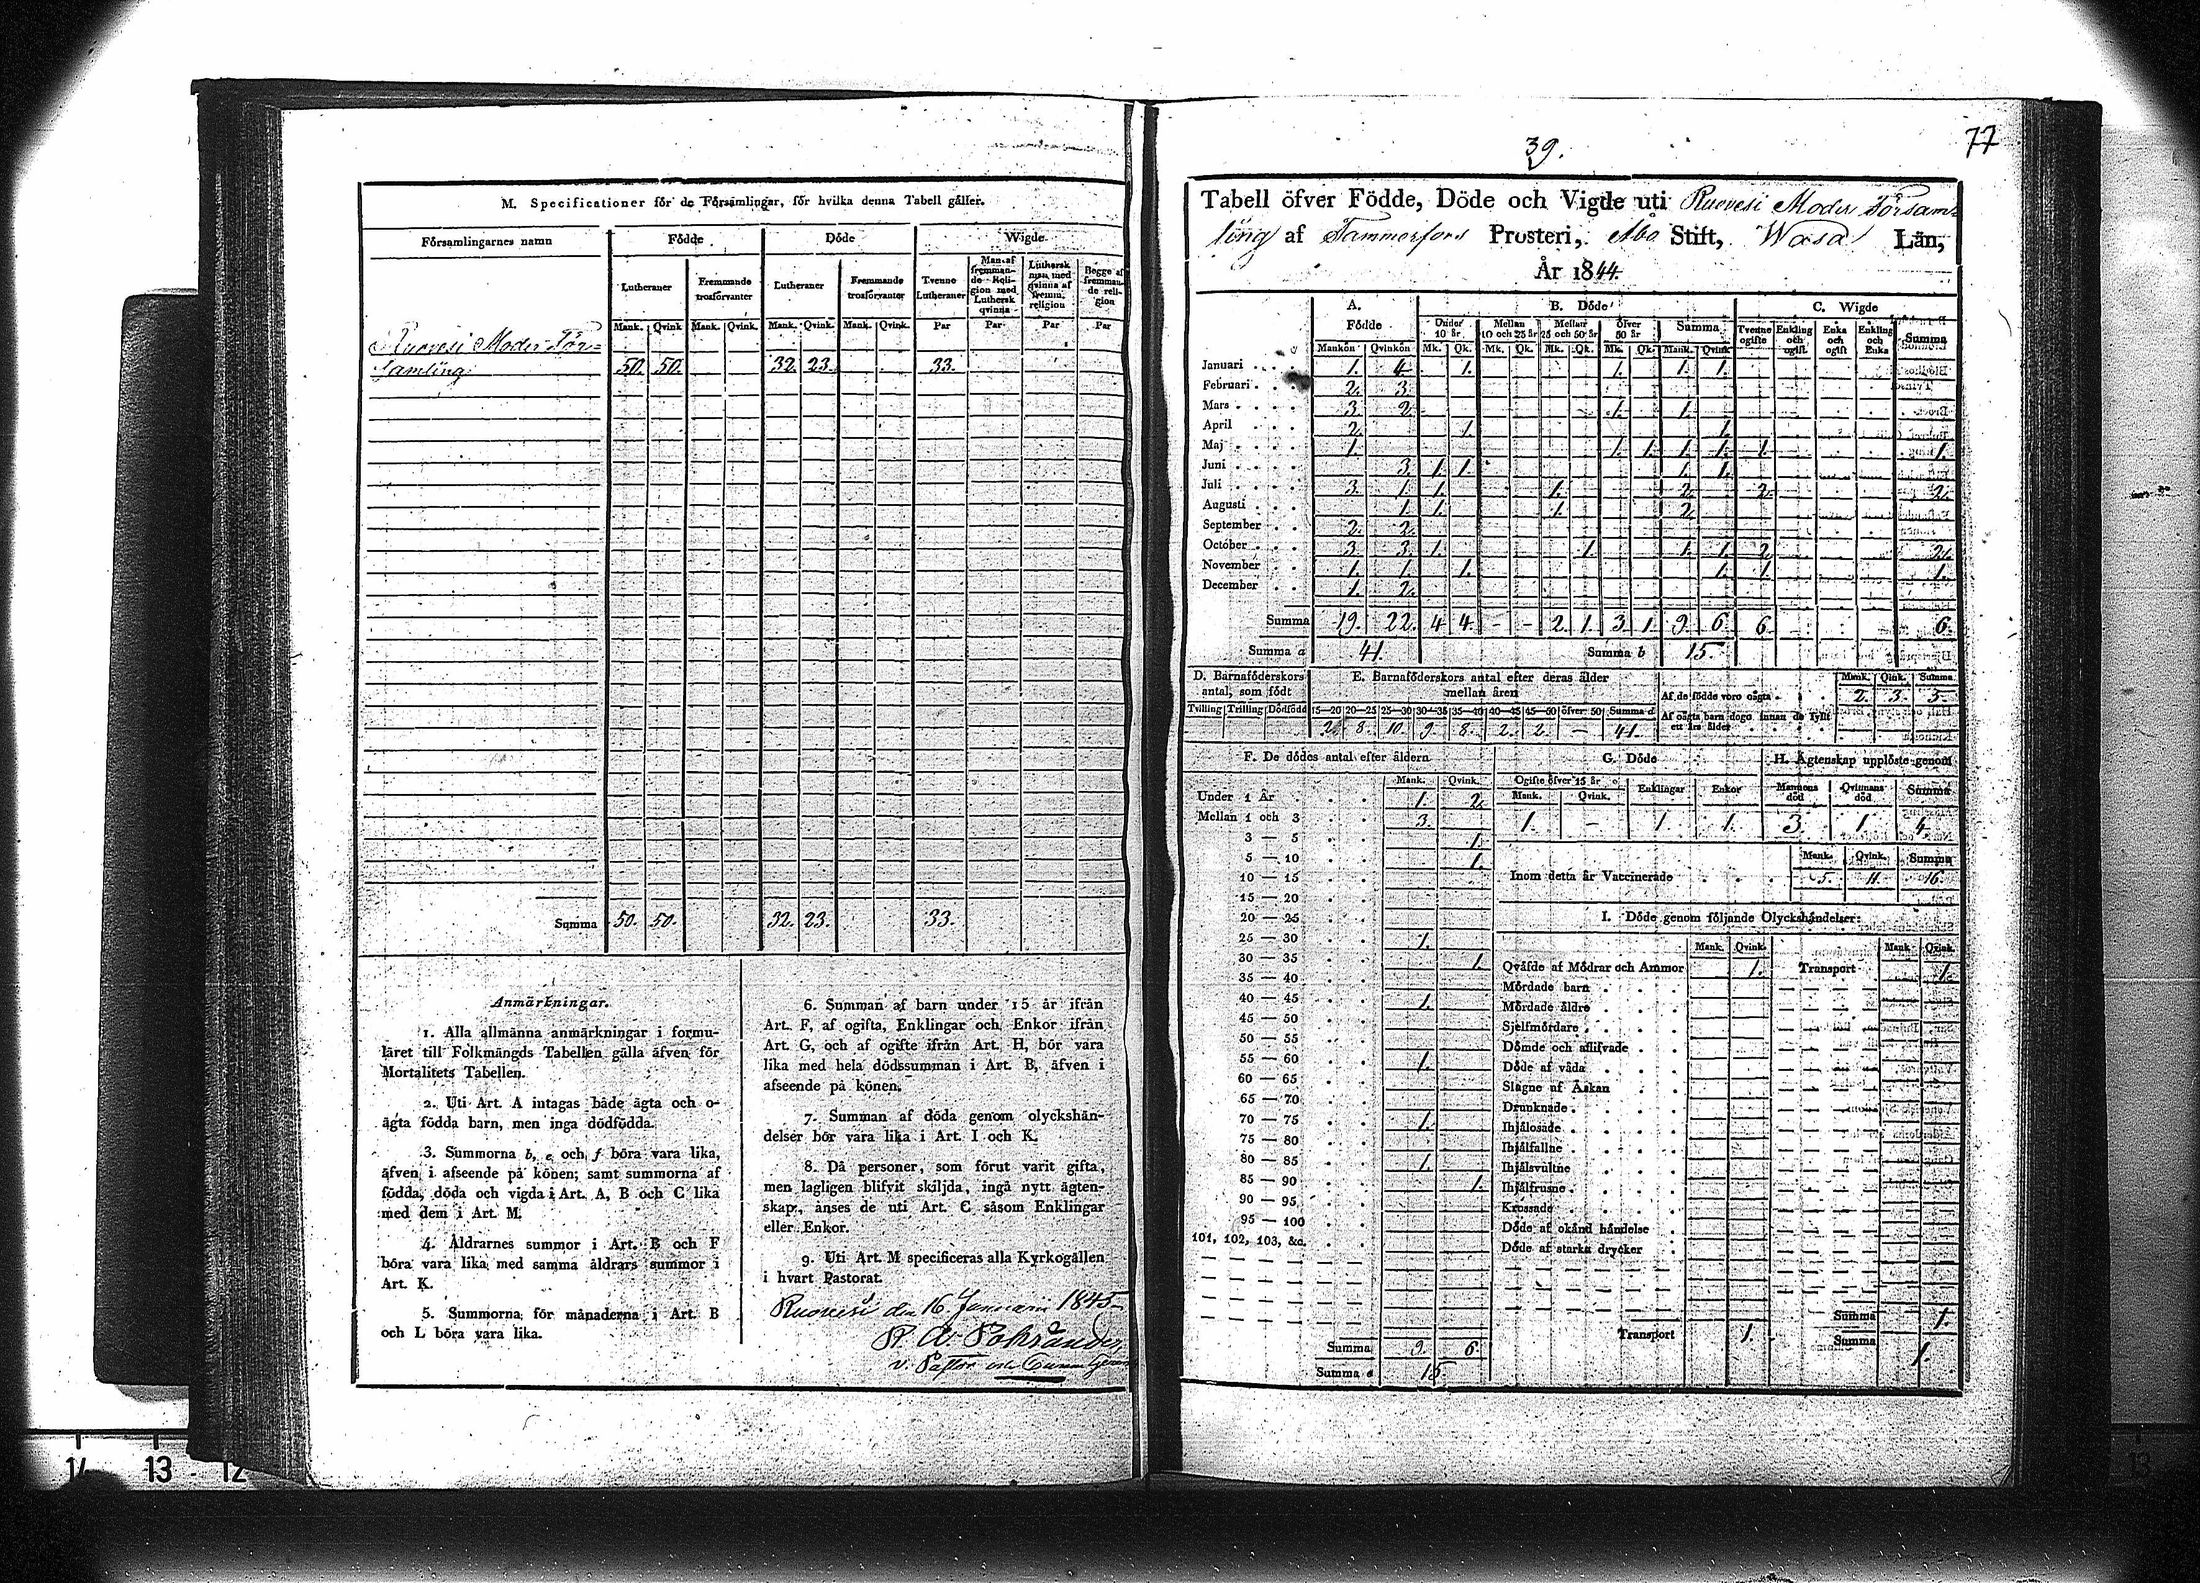 M. Specificationer för de Församlingar, för hvilka denna Tabell gäller.
Församlingarnes namn Födde Döde Wigde
Lutheraner Fremmande trosförvanter Lutheraner Fremmande trosförvanter Tvenne Lutheraner Man af fremmande Religion med Luthersk qvinna Luthersk man med qvinna af fremm. religion Begge af fremmande religion
Mank. Qvink Mank. Qvink. Mank. Qvink. Mank. Qvink. Par Par Par Par
Ruovesi Moder För=
samling 50. 50. 32. 23. 33.
Summa 50. 50. 32. 23. 33.
Anmärkningar.
1. Alla allmänna anmärkningar i formu-
läret till Folkmängds Tabellen gälla äfven för
Mortalitets Tabellen.
2. Uti Art. A intagas både ägta och o-
ägta födda barn, men inga dödfödda.
3. Summorna b, e och f böra vara lika,
äfven i afseende på könen; samt summorna af
födda, döda och vigda i Art. A, B och C lika
med dem i Art. M.
4. Åldrarnes summor i Art. B och F
böra vara lika med samma åldrars summor i
Art. K.
5. Summorna för månaderna i Art. B
och L böra vara lika.
6. Summan af barn under 15 år ifrån
Art. F, af ogifta, Enklingar och Enkor ifrån
Art. G, och af ogifte ifrån Art. H, bör vara
lika med hela dödssumman i Art. B, äfven i
afseende på könen.
7. Summan af döda genom olyckshän-
delser bör vara lika i Art. I och K.
8. Då personer, som förut varit gifta,
men lagligen blifvit skiljda, ingå nytt ägten-
skap, anses de uti Art. C såsom Enklingar
eller Enkor.
9. Uti Art. M specificeras alla Kyrkogällen
i hvart Pastorat.
Ruovesi den 16 Januari 1845
v. Pastor
77
39.
Tabell öfver Födde, Döde och Vigde uti Ruovesi Moder Försam=
ling af Tammerfors Prosteri, Åbo Stift, Wasa Län,
År 1844.
A. B. Döde C. Wigde
Födde Under 10 år Mellan 10 och 25 år Mellan 25 och 50 år Öfver 50 år Summa Tvenne ogifte Enkling och ogift Enka och ogift Enkling och Enka Summa
Mankön Qvinkön Mk. Qk. Mk. Qk. Mk. Qk. Mk. Qk. Mank. Qvink
Januari 1. 4. 1. 1. 1. 1.
Februari 2. 3.
Mars 3. 2. 1. 1.
April 2. 1. 1.
Maj 1. 1. 1. 1. 1. 1. 1.
Juni 3. 1. 1. 1. 1.
Juli 3. 1. 1. 1. 2. 2. 2.
Augusti 1. 1. 1. 2.
September 2. 2.
October 3. 3. 1. 1. 1. 1. 2. 2.
November 1. 1. 1. 1. 1. 1.
December 1. 2.
Summa 19. 22. 4 4. - - 2. 1. 3. 1. 9. 6. 6. 6.
Summa a 41. Summa b 15.
D. Barnaföderskors antal, som födt
Tvilling Trilling Dödfödd
E. Barnaföderskors antal efter deras ålder mellan åren
15—20 20—25 25—30 30—35 35—40 40—45 45—50 öfver 50 Summa d
2. 8. 10. 9. 8. 2. 2. — 41.
Mank. Qink. Summa
Af de födde voro oägta 2. 3. 5.
Af oägta barn dogo innan de fyllt ett års ålder
F. De dödes antal efter åldern
Mank. Qvink.
Under 1 År 1. 2.
Mellan 1 och 3 3.
3 — 5 1.
5 — 10 1.
10 — 15
15 — 20
20 — 25
25 — 30 1.
30 — 35 1.
35 — 40
40 — 45 1.
45 — 50
50 — 55
55 — 60 1.
60 — 65
65 — 70
70 — 75 1.
75 — 80
80 — 85 1.
85 — 90 1.
90 — 95
95 — 100
101, 102, 103, &c.
Summa 9. 6.
Summa 15.
G. Döde
Ogifte öfver 15 år Enklingar Enkor
Mank. Qvink.
1. — 1. 1.
H. Ägtenskap upplöste genom
Mannens död Qvinnans död Summa
3. 1. 4.
Mank. Qvink. Summa
Inom detta år Vaccinerade 5. 11. 16.
I. Döde genom följande Olyckshändelser:
Mank. Qvink. Mank. Qvink.
Qväfde af Mödrar och Ammor 1. Transport 1.
Mördade barn
Mördade äldre
Sjelfmördare
Dömde och aflifvade
Döde af våda
Slagne af Åskan
Drunknade
Ihjälosade
Ihjälfallne
Ihjälsvultne
Ihjälfrusne
Krossade
Döde af okänd händelse
Döde af starka drycker
Summa 1.
Transport 1. Summa 1.
14 13 12
13